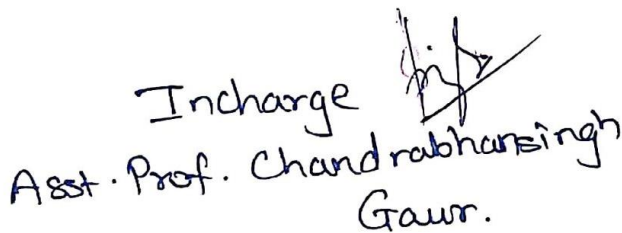 Incharge
Asst. Prof. Chandrabhansingh
Gaur.